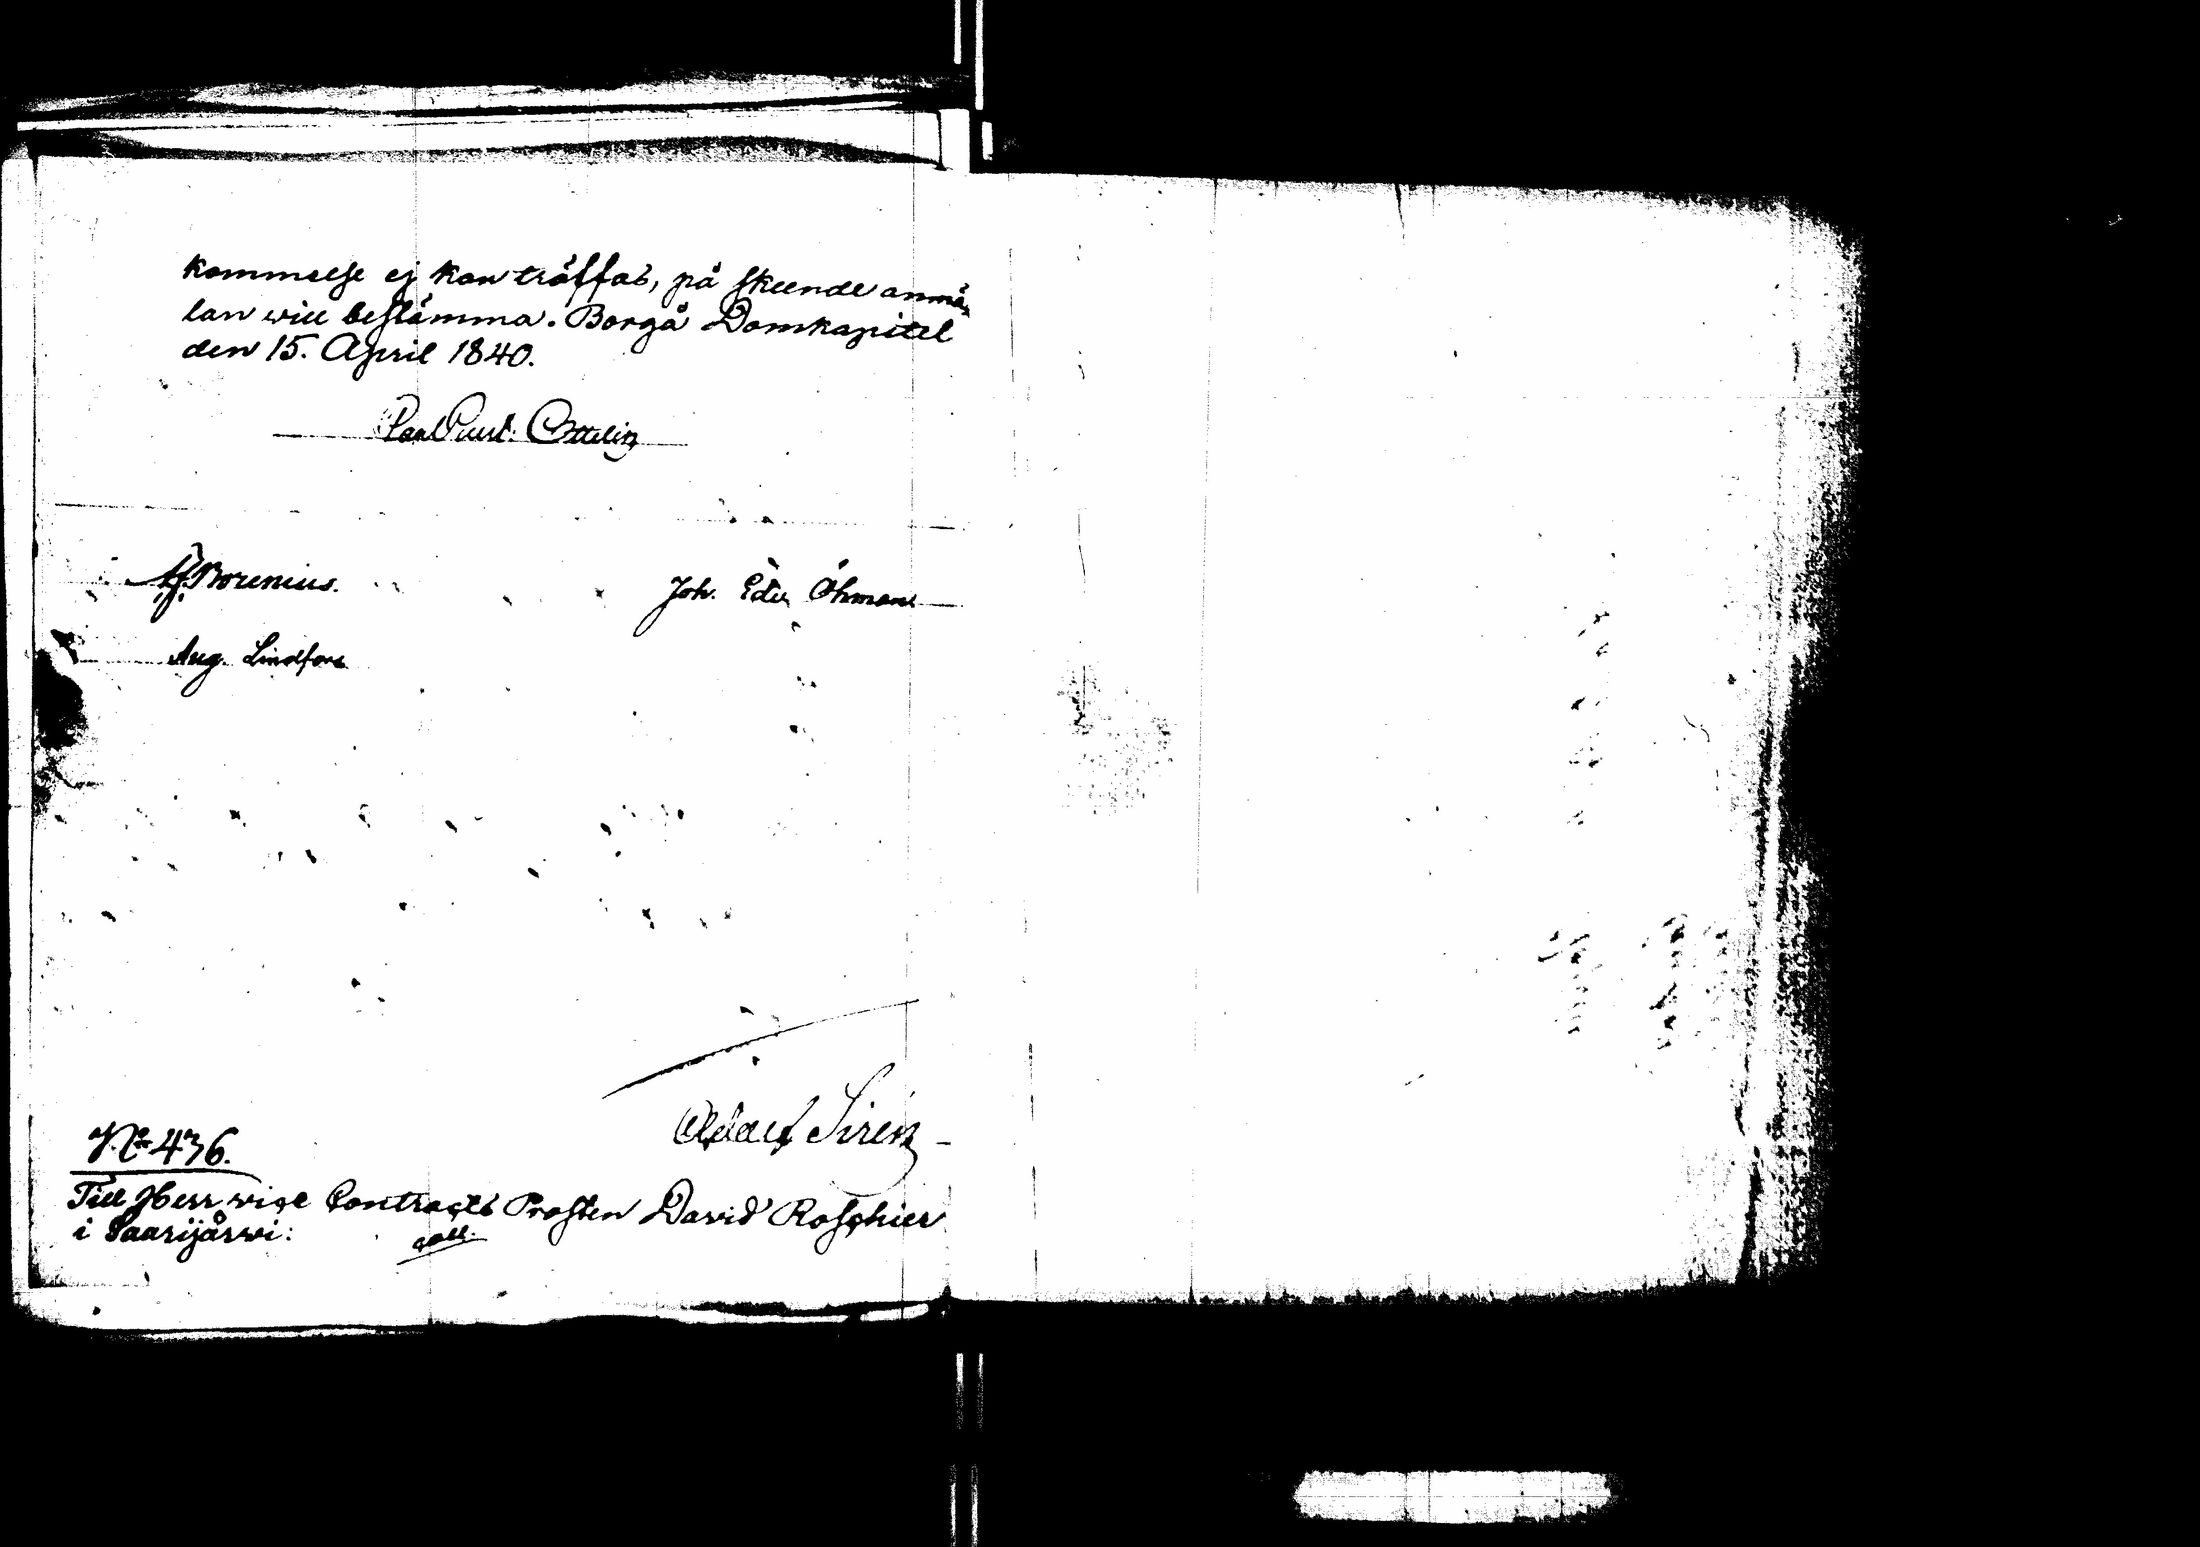 kommelse ej kan träffas, på skeende anmä-
lan will bestämma. Borgå Domkapitel
den 15. April 1840.
Carl Gust. Ottelin
A. J. Borenius.
Joh. Edv. Öhman
Aug. Lindfors
Adolf Sirén
No 436.
Till Herr vice Contracts Prosten David Roschier
i Saarijärwi:
coll.